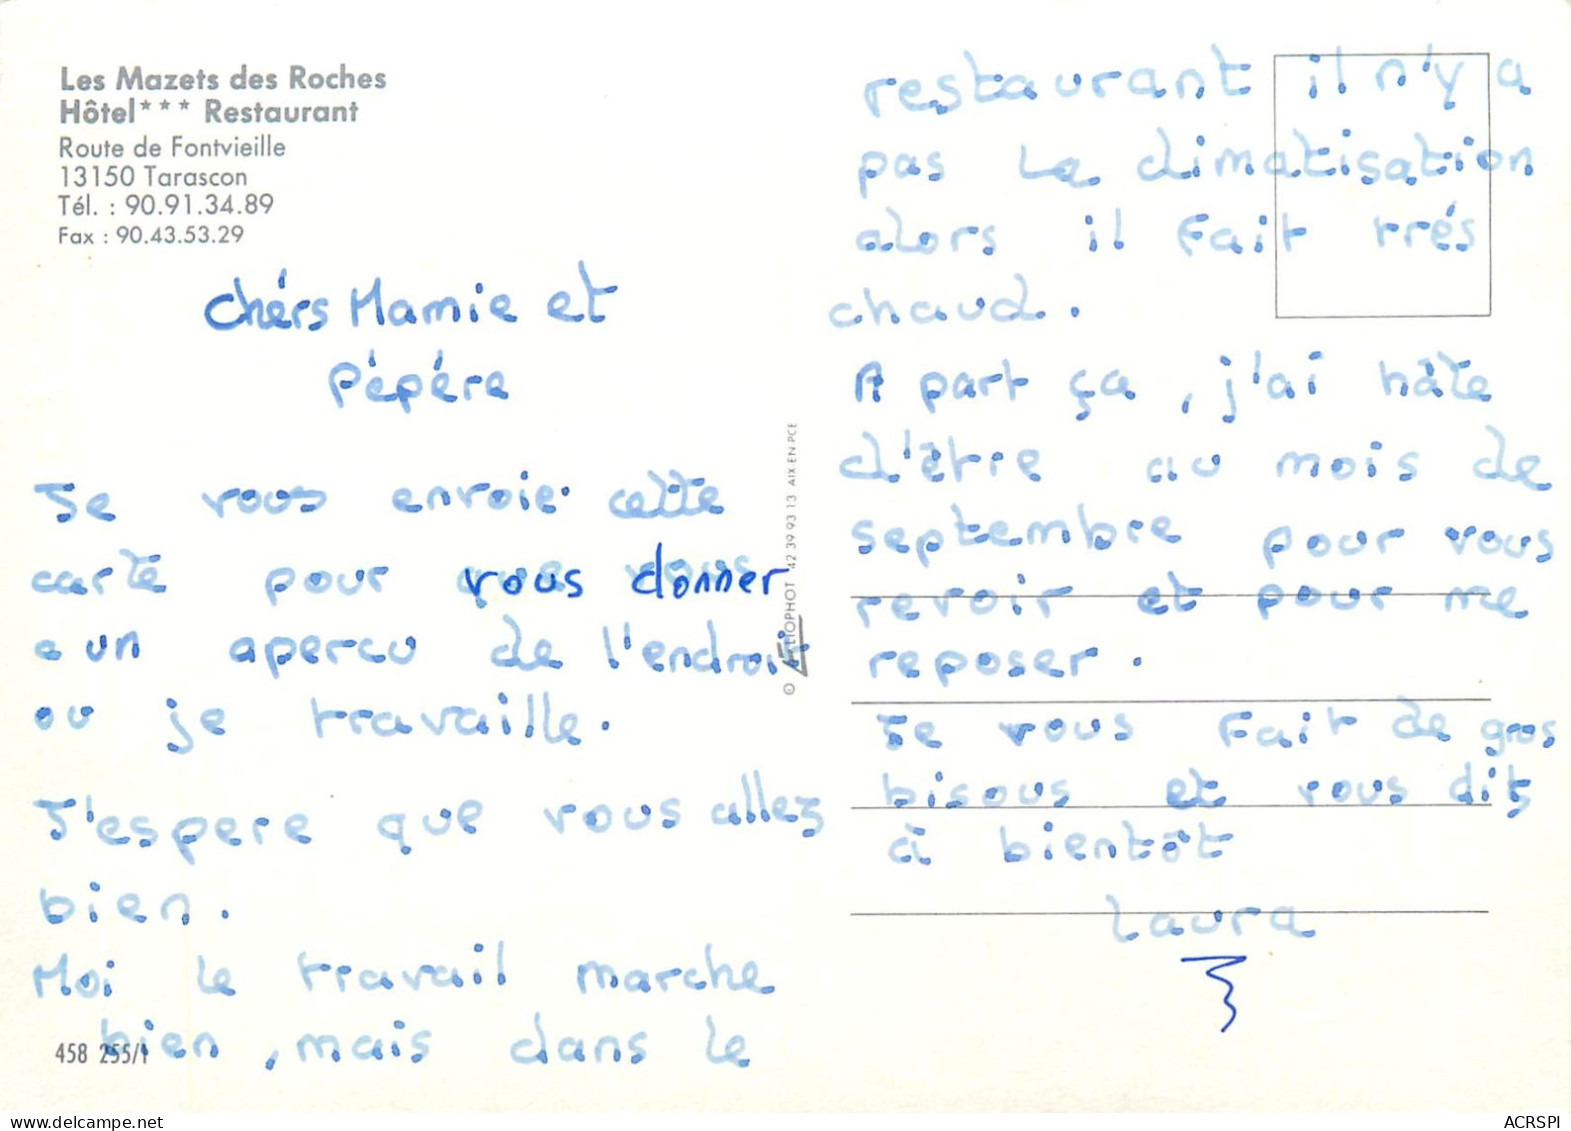 Les Mazets des Roches
Hôtel*** Restaurant
Route de Fontvieille
13150 Tarascon
Tél. : 90.91.34.89
Fax : 90.43.53.29
Chérs Mamie et
Pépére
Je vous envoie cette
carte pour vous donner
un aperçu de l'endroit
ou je travaille.
J'espere que vous allez
bien.
Moi le travail marche
bien, mais dans le
458 255/1
© 42 39 93 13 AIX EN PCE
restaurant il n'y a
pas la climatisation
alors il fait trés
chaud.
A part ça, j'ai hâte
d'être au mois de
septembre pour vous
revoir et pour me
reposer.
Je vous fait de gros
bisous et vous dit
à bientôt
Laura
ACRSPI